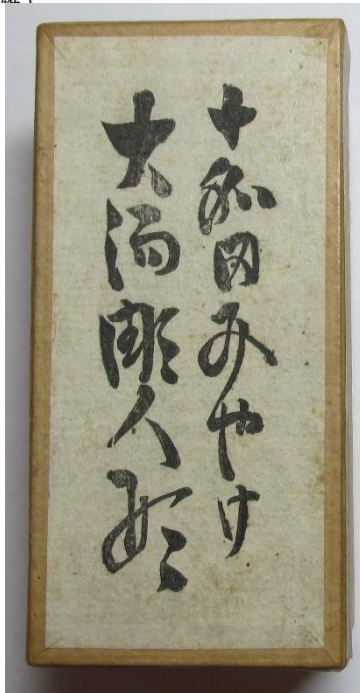 十和田みやけ
大湯彫人形